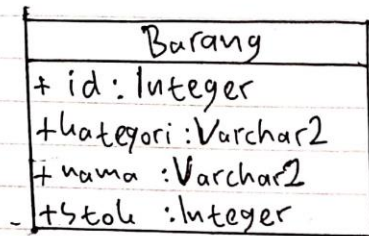 Barang
+ id : Integer
+kategori : Varchar2
+ nama : Varchar2
+Stok : Integer